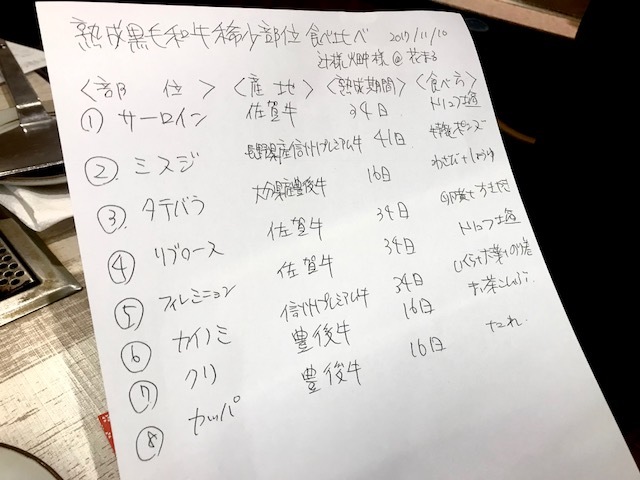 熟成黒毛和牛稀少部位 食べ比べ 2017/11/10
辻様畑中様@花まる
〈部 位〉 〈産 地〉 〈熟成期間〉 〈食べ方〉
① サーロイン 佐賀牛 34日 トリュフ塩
② ミスジ 長野県産信州プレミアム牛 41日 ポンズ
③ タテバラ 大分県産豊後牛 16日 わさび+しょうゆ
④ リブロース 佐賀牛 34日
⑤ フィレミニョン 佐賀牛 34日 トリュフ塩
⑥ カイノミ 信州プレミアム牛 34日 いくら+大葉+のり巻
⑦ クリ 豊後牛 16日 こしょう
⑧ カッパ 豊後牛 16日 たれ